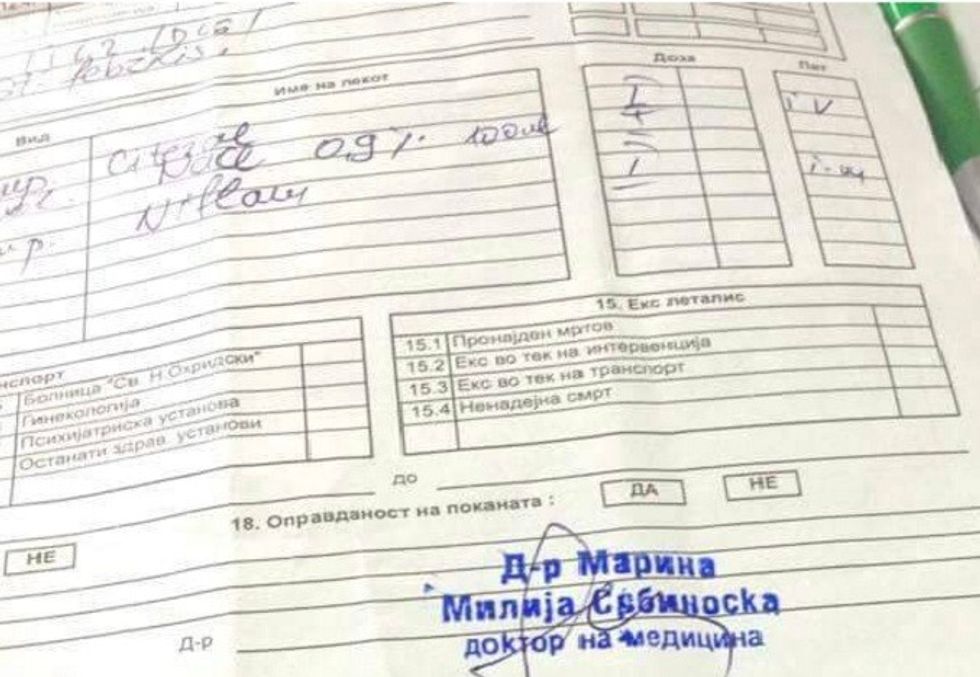 Вид
Име на лекот
Доза
Пат
NaCl 0,9 % 100 ml
I
i v
Niflam
I
15. Екс леталис
15.1 Пронајден мртов
15.2 Екс во тек на интервенција
15.3 Екс во тек на транспорт
15.4 Ненадејна смрт
нспорт
Болница "Св. Н.Охридски"
Гинекологија
Психијатриска установа
Останати здрав. установи
до
18. Оправданост на поканата :
ДА
НЕ
НЕ
Д-р Марина
Милија Србиноска
доктор на медицина
Д-р